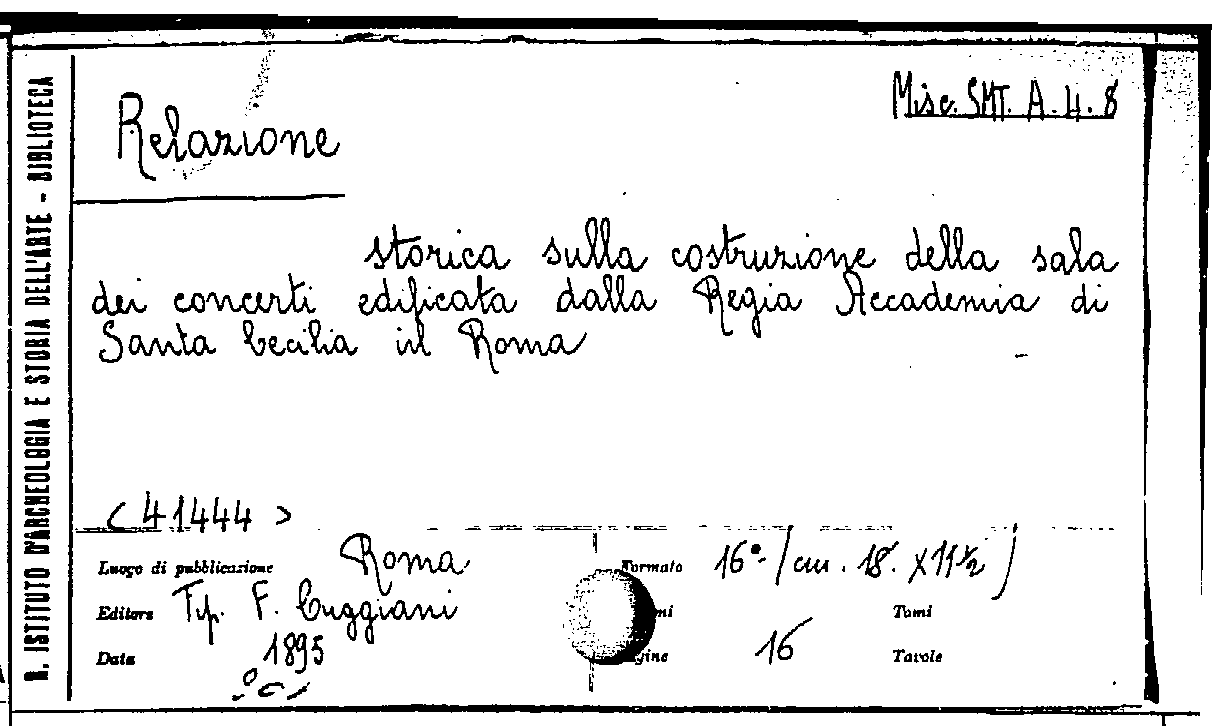 R. ISTITUTO D'ARCHEOLOGIA E STORIA DELL'ARTE - BIBLIOTECA
Misc. SMT. A. 4. 8
Relazione
storica sulla costruzione della sala
dei concerti edificata dalla Regia Accademia di
Santa Cecilia in Roma
(41444)
Luogo di pubblicazione Roma
Formato 16°. (cm. 18. x 11½)
Editore Tip. F. Cuggiani
Tomi
Data 1895
16
Tavole